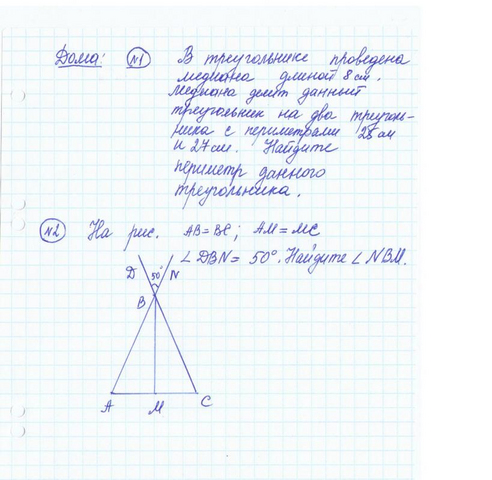 Дома: №1 В треугольнике проведена
медиана длиной 8 см.
Медиана делит данный
треугольник на два треуголь-
ника с периметрами 28 см
и 27 см. Найдите
периметр данного
треугольника.
№2 На рис. AB=BC; AM=MC
∠DBN= 50°. Найдите ∠NBM.
D 50° N
B
A M C